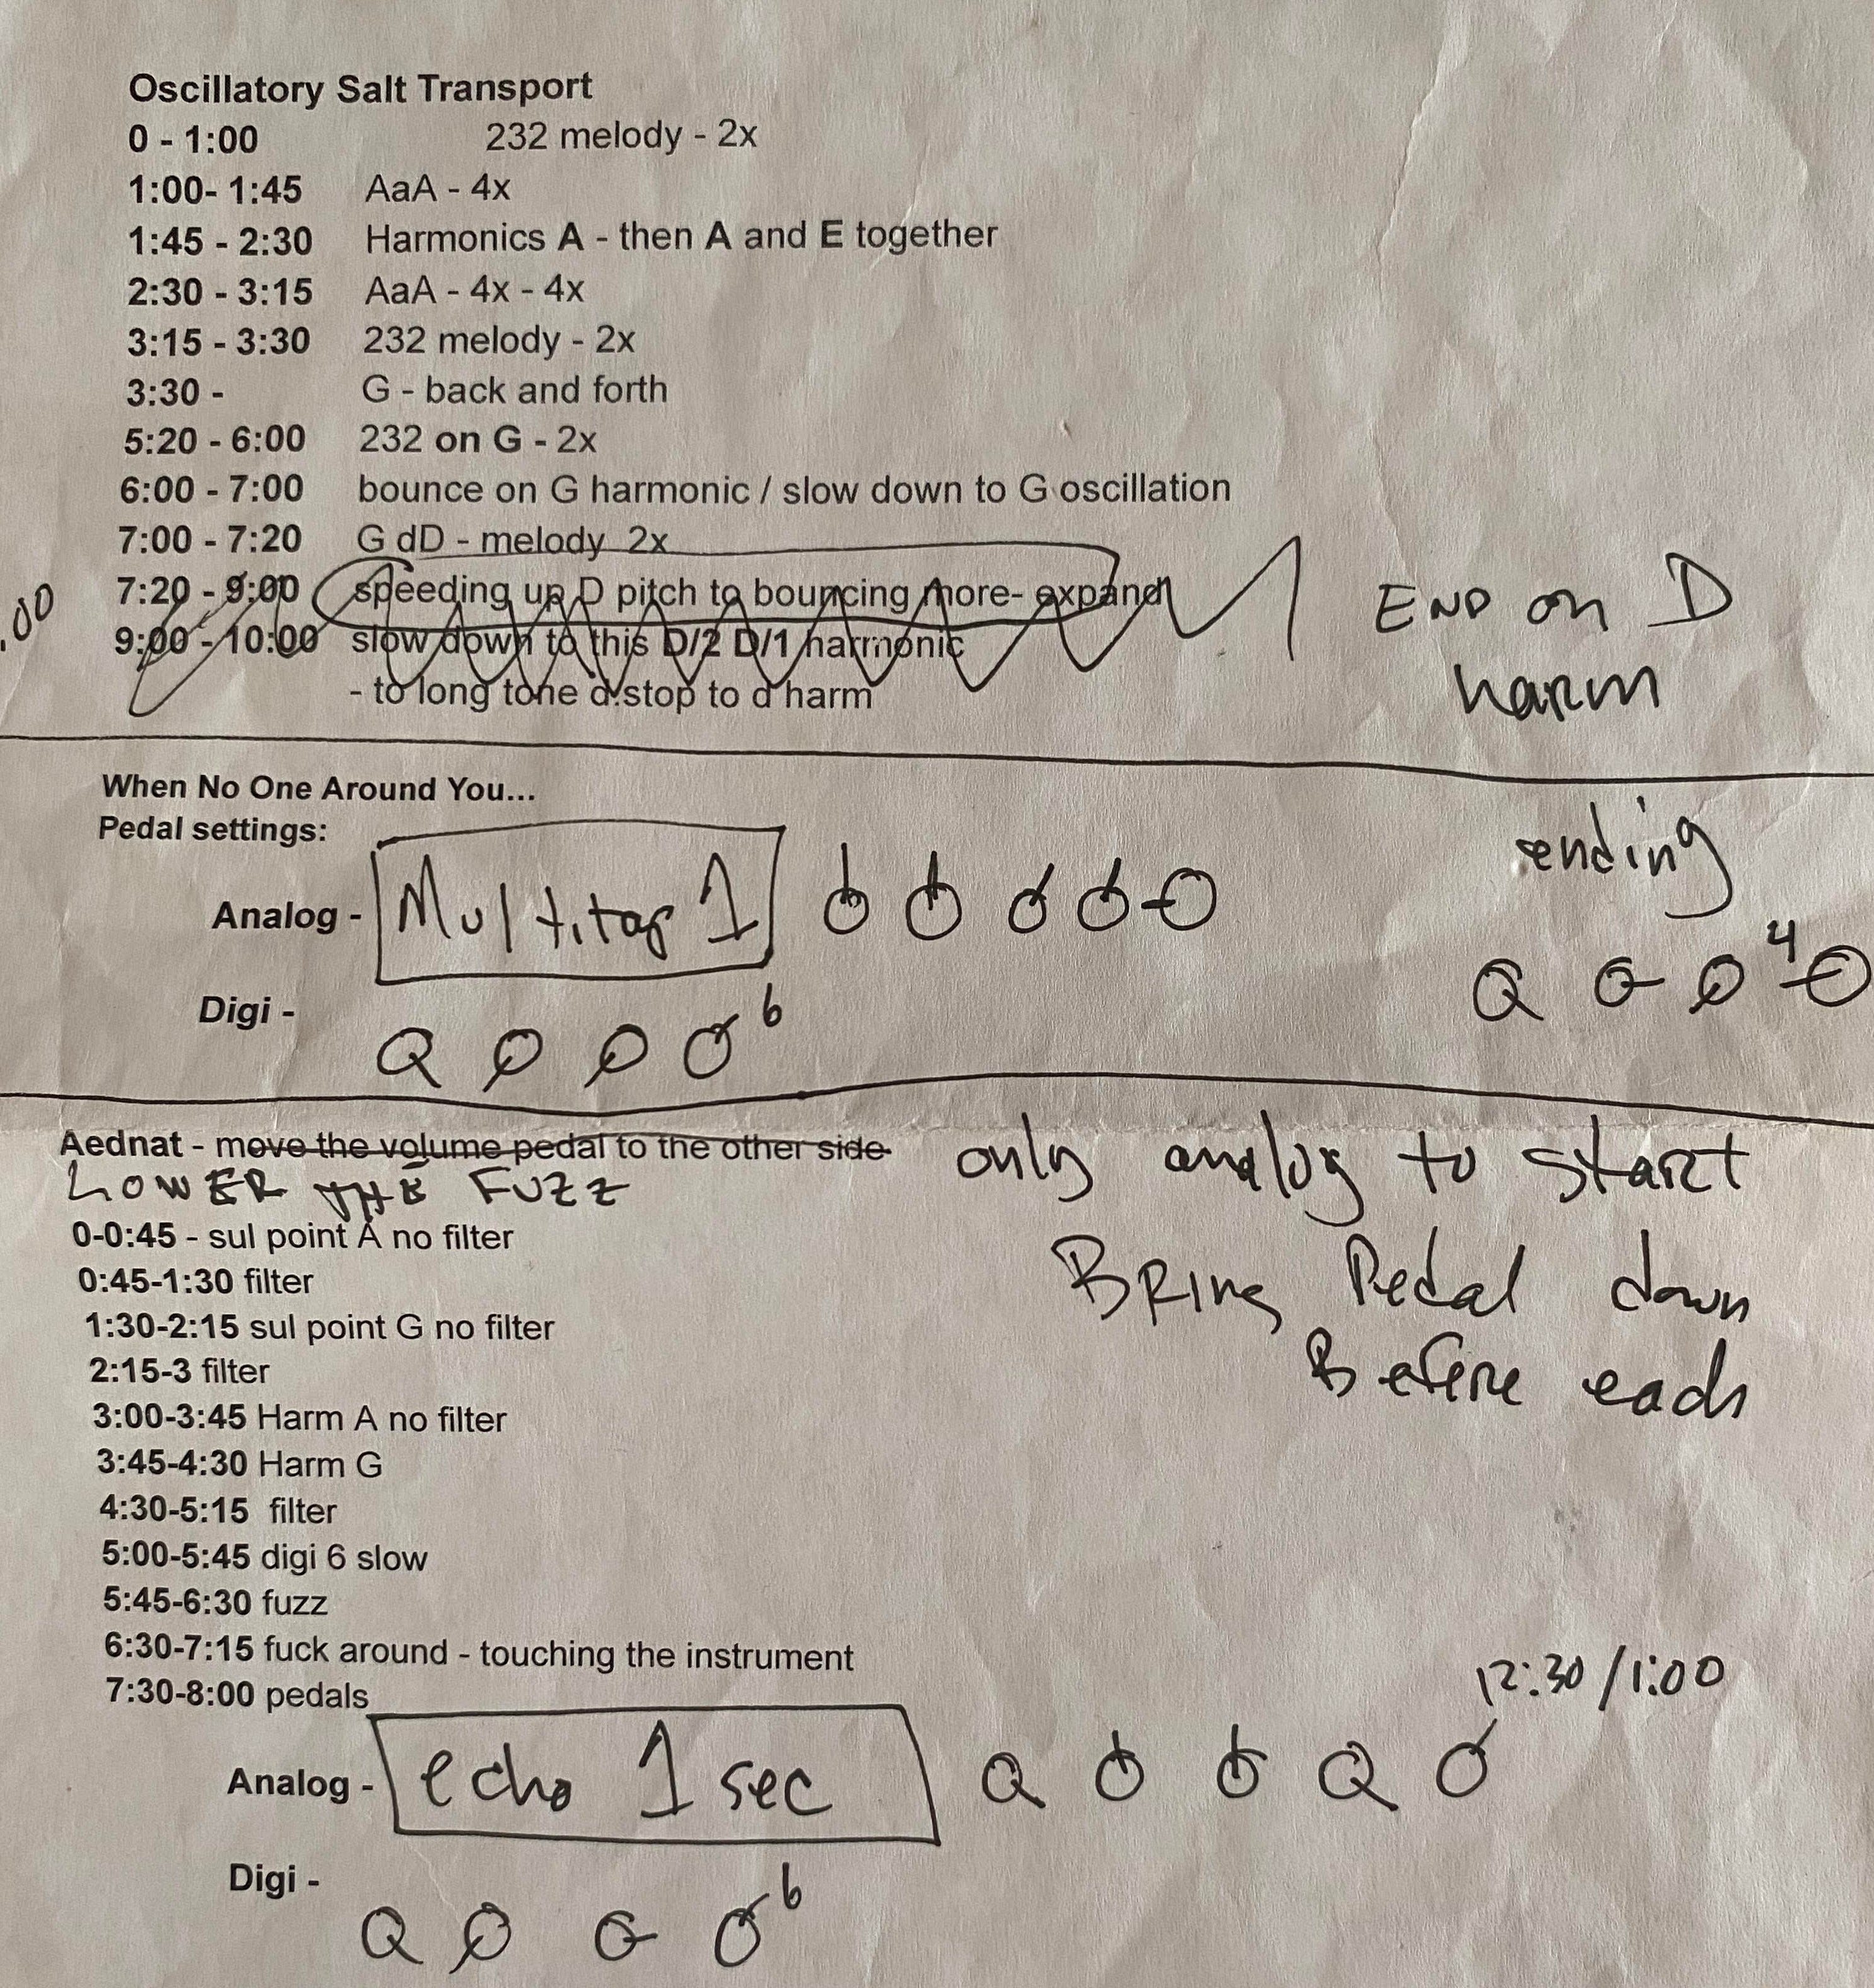 Oscillatory Salt Transport
0 - 1:00 232 melody - 2x
1:00- 1:45 AaA - 4x
1:45 - 2:30 Harmonics A - then A and E together
2:30 - 3:15 AaA - 4x - 4x
3:15 - 3:30 232 melody - 2x
3:30 - G - back and forth
5:20 - 6:00 232 on G - 2x
6:00 - 7:00 bounce on G harmonic / slow down to G oscillation
7:00 - 7:20 G dD - melody 2x
7:20 - 9:00 speeding up D pitch to bouncing more- expand
9:00 - 10:00 slow down to this D/2 D/1 harmonic
- to long tone d.stop to d harm
END on D
harm
When No One Around You...
Pedal settings:
Analog - Multitap 1
ending
4
Digi -
6
Aednat - move the volume pedal to the other side
LOWER THE FUZZ
only analog to start
Bring Pedal down
Before each
0-0:45 - sul point A no filter
0:45-1:30 filter
1:30-2:15 sul point G no filter
2:15-3 filter
3:00-3:45 Harm A no filter
3:45-4:30 Harm G
4:30-5:15 filter
5:00-5:45 digi 6 slow
5:45-6:30 fuzz
6:30-7:15 fuck around - touching the instrument
7:30-8:00 pedals
12:30/1:00
Analog - echo 1 sec
Digi -
6